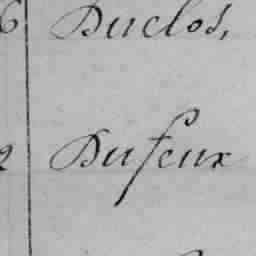 6 Duclos,
2 Dufeux